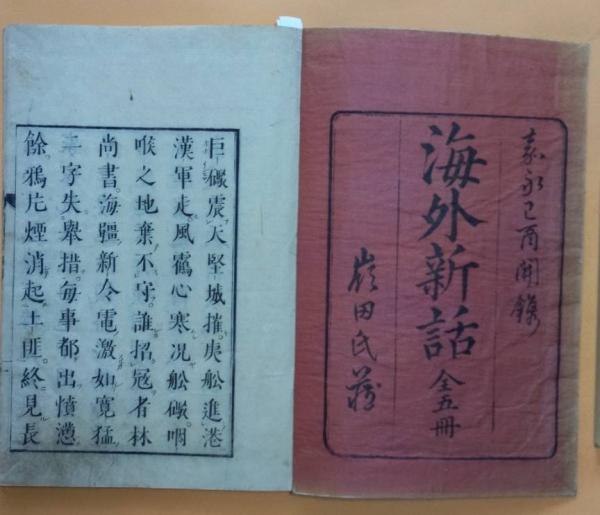 嘉永己酉開鐫
海外新話 全五冊
嶺田氏蔵
巨礟震天堅城摧夷舩進港
漢軍走風鶴心寒況舩礟咽
喉之地棄不守誰招冦者林
尚書海疆新令電激如寛猛
二字失舉措毎事都出憤懣
餘鴉片煙消起土匪終見長